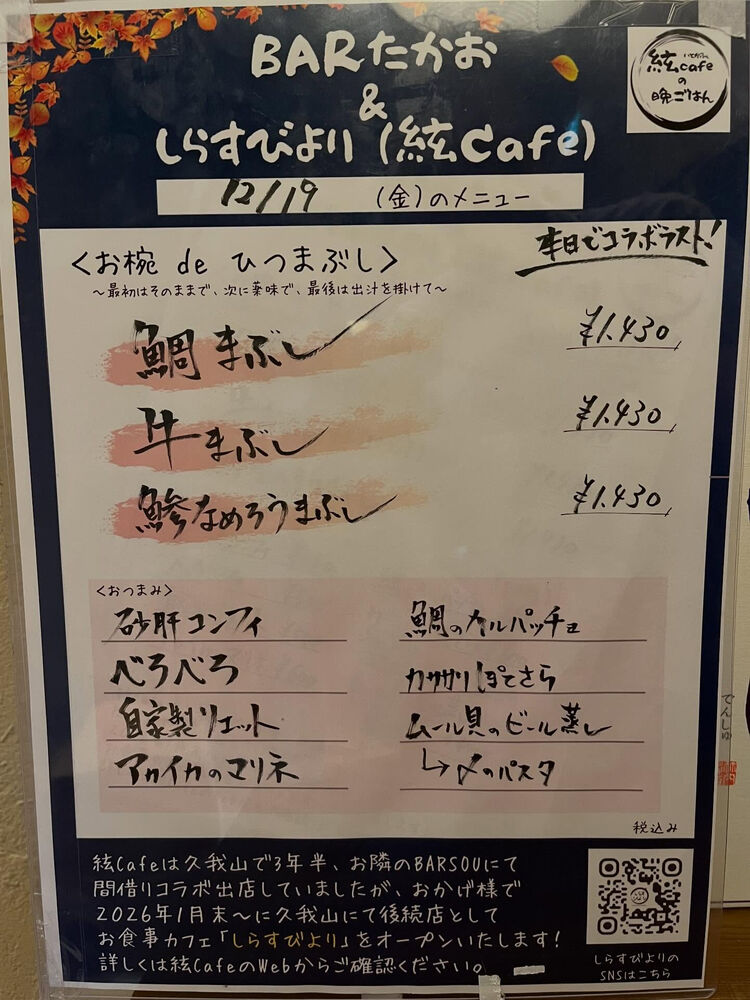 BARたかお
&
しらすびより(絃Cafe)
絃cafe
の
晩ごはん
12/19 (金)のメニュー
本日でコラボラスト!
<お椀 de ひつまぶし>
〜最初はそのままで、次に薬味で、最後は出汁を掛けて〜
鯛まぶし ¥1,430
牛まぶし ¥1,430
鯵なめろうまぶし ¥1,430
<おつまみ>
砂肝コンフィ
べろべろ
自家製リエット
アカイカのマリネ
鯛のカルパッチョ
カサカリぽてさら
ムール貝のビール蒸し
↳〆のパスタ
税込み
絃Cafeは久我山で3年半、お隣のBARSOUにて
間借りコラボ出店していましたが、おかげ様で
2026年1月末〜に久我山にて後続店として
お食事カフェ「しらすびより」をオープンいたします!
詳しくは絃CafeのWebからご確認ください。
しらすびよりの
SNSはこちら
でんしゅ